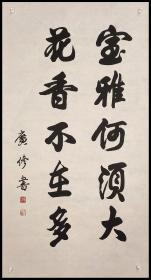 室雅何須大
花香不在多
廣修書